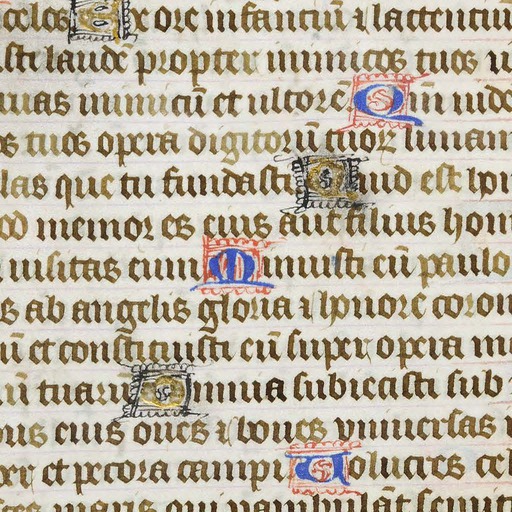 celos Ex ore infantiū ⁊ lactentiū
sti laudē propter inimicos tuos u
uas inimicū et ultorē Qm̄ uide
os tuos opera digitorū tuoꝝ lunam
las que tu fundasti Quid est
od memor es eius aut filius homi
uisitas eum Minuisti eū paulo
s ab angelis gloria ⁊ honore coron
ū et constituisti eū super opera m
ū tuarū Omnia subiecisti sub
ous eius oues ⁊ boues vniuersas
er et pecora campi Volucres cel
sces maris qui pambulāt semit